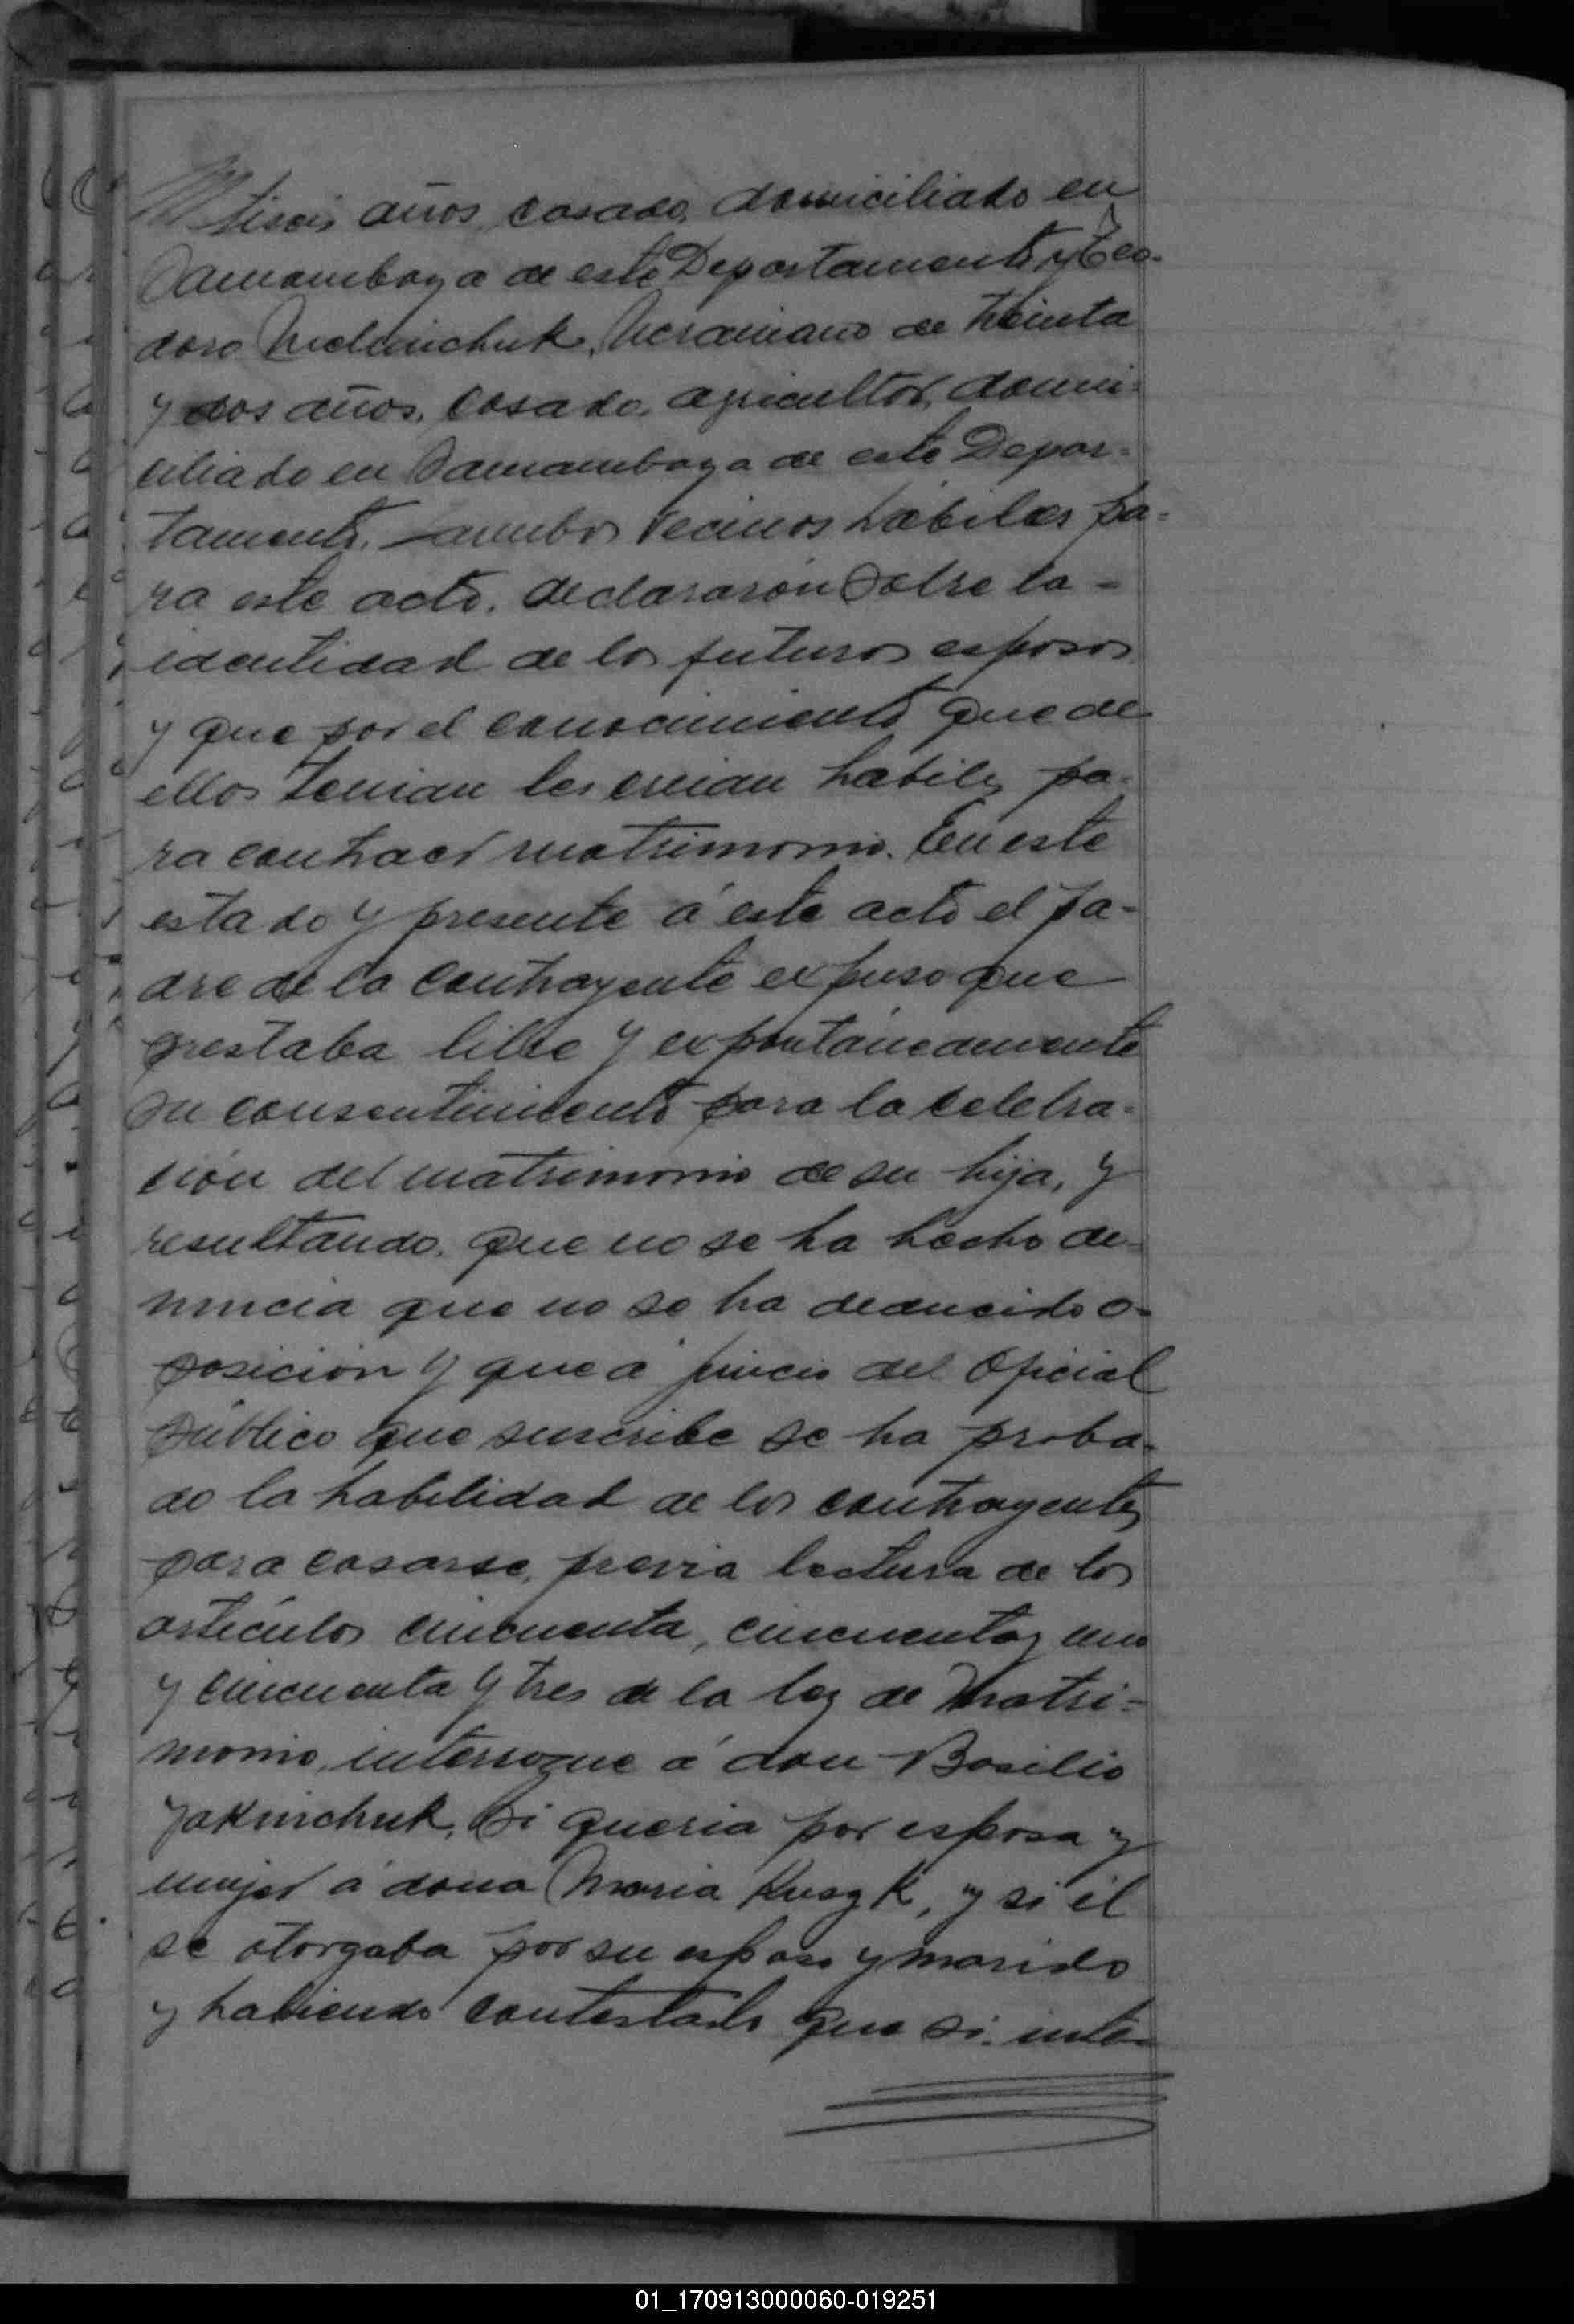 tiseis años, casado, domiciliado en
Samambaya de este Departamento y Teo-
doro Melnichuk, Ucraniano de treinta
y dos años, casado, agricultor, domi-
ciliado en Samambaya de este Depar-
tamento, ambos vecinos hábiles pa-
ra este acto, declararon sobre la -
identidad de los futuros esposos
y que por el conocimiento que de
ellos tenian les creian habiles pa-
ra contraer matrimonio. En este
estado y presente á este acto el pa-
dre de la contrayente expuso que
prestaba libre y expontáneamente
su consentimiento para la celebra-
ción del matrimonio de su hija, y
resultando, que no se ha hecho de-
nuncia que no se ha deducido o-
posición y que á juicio del Oficial
Público que suscribe se ha proba-
do la habilidad de los contrayentes
para casarse, previa lectura de los
artículos cincuenta, cincuenta y uno
y cincuenta y tres de la ley de Matri-
monio, interrogue á don Basilio
Jakinchuk, si queria por esposa y
mujer á doña Maria Kuszyk, y si él
se otorgaba por su esposo y marido
y habiendo contestado que si, inte-
01_170913000060-019251